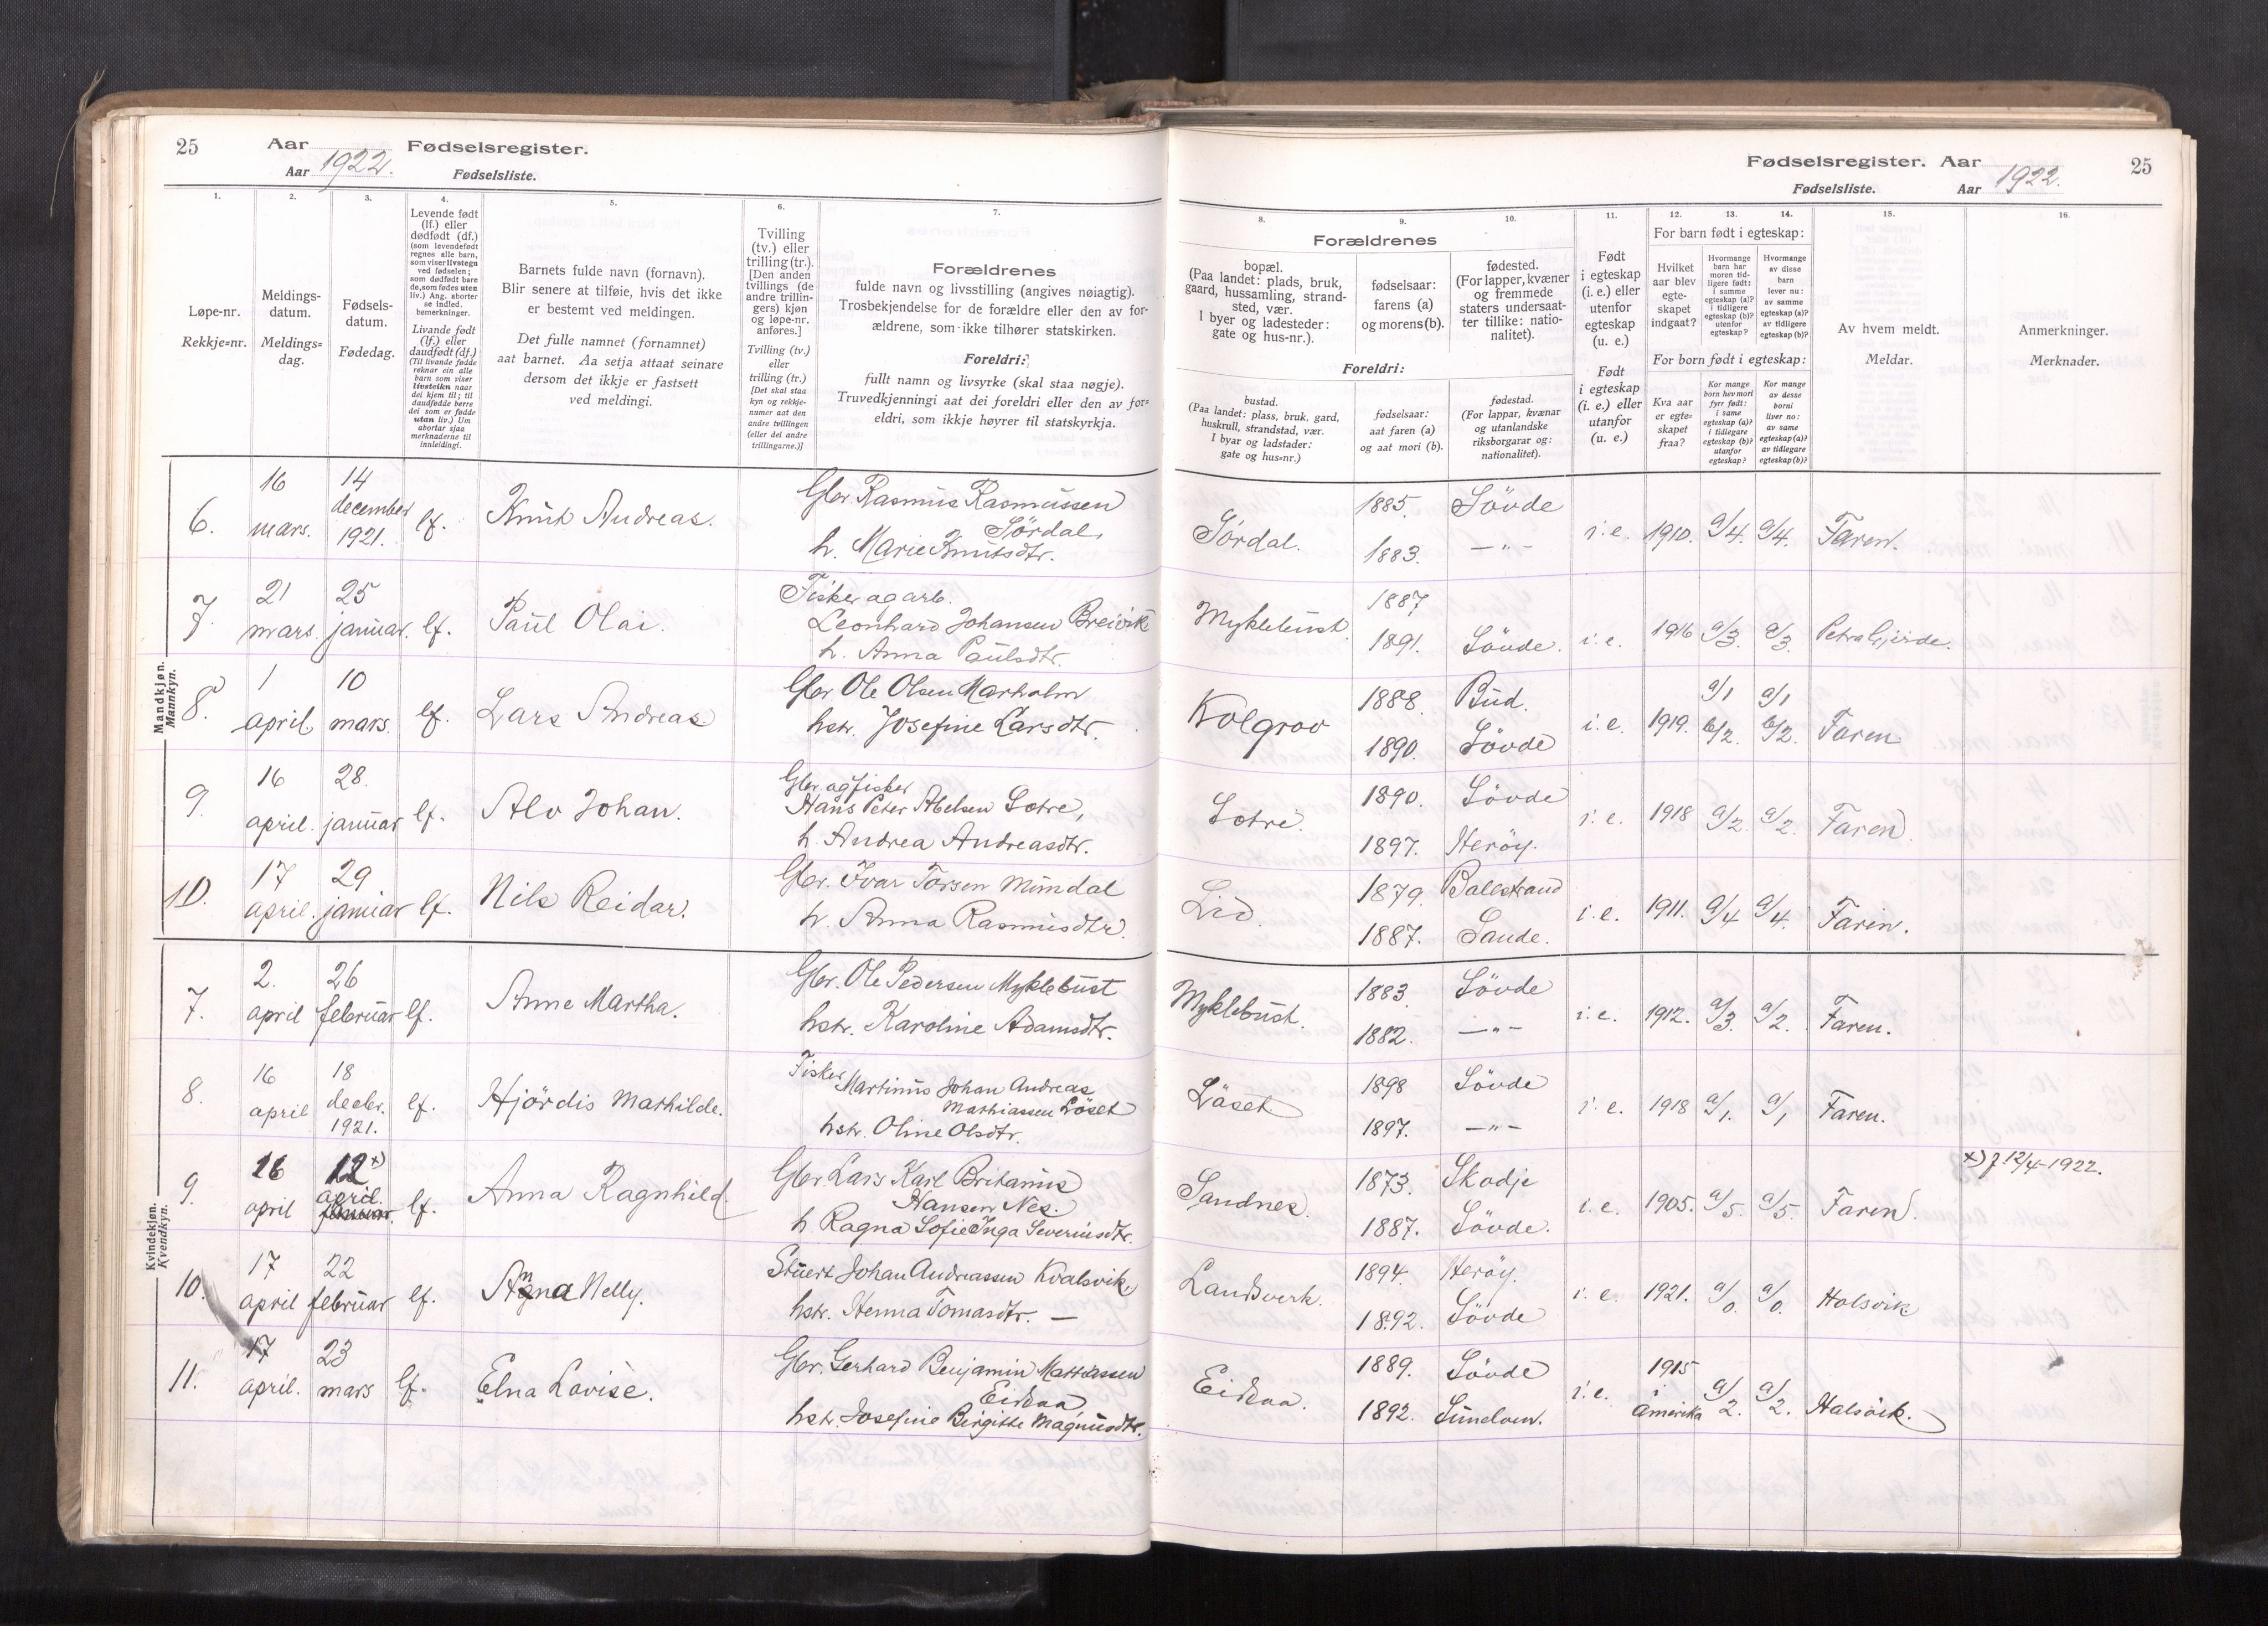 25 Aar 1922. Fødselsregister.
Aar Fødselsliste.
Fødselsregister. Aar 1922. 25
Fødselsliste. Aar
1. 2. 3. 4. 5. 6. 7.
Løpe-nr.
Rekkje=nr.
Meldings-
datum.
Meldings=
dag.
Fødsels-
datum.
Fødedag.
Levende født
(lf.) eller
dødfødt (df.)
(som levendefødt
regnes alle barn,
som viser livstegn
ved fødselen;
som dødfødt bare
de, som fødes uten
liv.) Ang. aborter
se indled.
bemerkninger.
Livande født
(lf.) eller
daudfødt (df.)
(Til livande fødde
reknar ein alle
born som viser
livsteikn naar
dei kjem til; til
daudfødde berre
dei som er fødde
utan liv.) Um
abortar sjaa
merknaderne til
innleidingi.
Barnets fulde navn (fornavn).
Blir senere at tilføie, hvis det ikke
er bestemt ved meldingen.
Det fulle namnet (fornamnet)
aat barnet. Aa setja attaat seinare
dersom det ikkje er fastsett
ved meldingi.
Tvilling
(tv.) eller
trilling (tr.).
[Den anden
tvillings (de
andre trillin-
gers) kjøn
og løpe-nr.
anføres.]
Tvilling (tv.)
eller
trilling (tr.)
[Det skal staa
kyn og rekkje-
numer aat den
andre tvillingen
(eller dei andre
trillingarne.)]
Forældrenes
fulde navn og livsstilling (angives nøiagtig).
Trosbekjendelse for de forældre eller den av for-
ældrene, som ikke tilhører statskirken.
Foreldri:
fullt namn og livsyrke (skal staa nøgje).
Truvedkjenningi aat dei foreldri eller den av for=
eldri, som ikkje høyrer til statskyrkja.
8. 9. 10. 11. 12. 13. 14. 15. 16.
Forældrenes
bopæl.
(Paa landet: plads, bruk,
gaard, hussamling, strand-
sted, vær.
I byer og ladesteder:
gate og hus-nr.).
fødselsaar:
farens (a)
og morens (b).
fødested.
(For lapper, kvæner
og fremmede
staters undersaat-
ter tillike: natio-
nalitet).
Foreldri:
bustad.
(Paa landet: plass, bruk, gard,
huskrull, strandstad, vær.
I byar og ladstader:
gate og hus=nr.)
fødselsaar:
aat faren (a)
og aat mori (b).
fødestad.
(For lappar, kvænar
og utanlandske
riksborgarar og:
nationalitet).
Født
i egteskap
(i. e.) eller
utenfor
egteskap
(u. e.)
Født
i egteskap
(i. e.) eller
utanfor
(u. e.)
For barn født i egteskap:
Hvilket
aar blev
egte-
skapet
indgaat?
Hvormange
barn har
moren tid-
ligere født:
i samme
egteskap (a)?
i tidligere
egteskap (b)?
utenfor
egteskap?
Hvormange
av disse
barn
lever nu:
av samme
egteskap (a)?
av tidligere
egteskap (b)?
For born født i egteskap:
Kva aar
er egte=
skapet
fraa?
Kor mange
born hev mori
fyrr født:
i same
egteskap (a)?
i tidlegare
egteskap (b)?
utanfor
egteskap?
Kor mange
av desse
borni
liver no:
av same
egteskap (a)?
av tidlegare
egteskap (b)?
Av hvem meldt.
Meldar.
Anmerkninger.
Merknader.
Mandkjøn.
Mannkyn.
6. 16 mars. 14 december 1921. lf. Knut Andreas. Gbr. Rasmus Rasmussen Sørdal, h. Marie Knutsdtr. Sørdal. 1885. 1883. Sövde —"— i. e. 1910. a/4. a/4. Faren.
7. 21 mars. 25 januar. lf. Paul Olai. Fisker og arb. Leonhard Johansen Breivik h. Anna Paulsdtr. Myklebust. 1887 1891. Sövde. i. e. 1916 a/3. a/3. Petra Gjerde.
8. 1 april 10 mars. lf. Lars Andreas Gbr. Ole Olsen Marholm hstr. Josefine Larsdtr. Kolgrov 1888. 1890. Bud. Sövde i. e. 1919. a/1 b/2. a/1 b/2. Faren
9. 16 april. 28. januar lf. Alv Johan. Gbr. og fisker Hans Peter Abelsen Sætre, h. Andrea Andreasdtr. Sætre. 1890. 1897. Sövde Heröy. i. e. 1918 a/2 a/2. Faren.
10. 17 april. 29 januar lf. Nils Reidar. Gbr. Ivar Torsen Mundal h. Anna Rasmusdtr. Lid. 1879. 1887. Balestrand Sande. i. e. 1911. a/4 a/4. Faren.
Kvindekjøn.
Kvendkyn.
7. 2. april 26 februar lf. Anne Martha. Gbr. Ole Pedersen Myklebust hstr. Karoline Adamsdtr. Myklebust. 1883. 1882. Sövde —"— i. e. 1912. a/3. a/2. Faren.
8. 16 april 18 decbr. 1921. lf. Hjördis Mathilde. Fisker Martinus Johan Andreas Mathiassen Löset hstr. Oline Olsdtr. Löset 1898 1897. Sövde —"— i. e. 1918 a/1. a/1 Faren.
9. 16 april 12 x) april. januar. lf. Anna Ragnhild. Gbr. Lars Karl Britanus Hansen Nes. h. Ragna Sofie Inga Severinsdtr. Sandnes. 1873. 1887. Skodje Sövde. i. e. 1905. a/5. a/5. Faren. x) f. 12/4 1922.
10. 17 april 22 februar lf. Anna Nelly. Stuert Johan Andreassen Kvalsvik. hstr. Henna Tomasdtr. — Landverk. 1894. 1892. Heröy. Sövde i. e. 1921. a/0. a/0. Holsvik
11. 17 april. 23 mars lf. Elna Lovise. Gbr. Gerhard Benjamin Mathiassen Eidraa hstr. Josefine Birgitte Magnusdtr. Eidraa. 1889. 1892. Sövde Sunelven. i. e. 1915 i Amerika a/2. a/2. Halsvik.